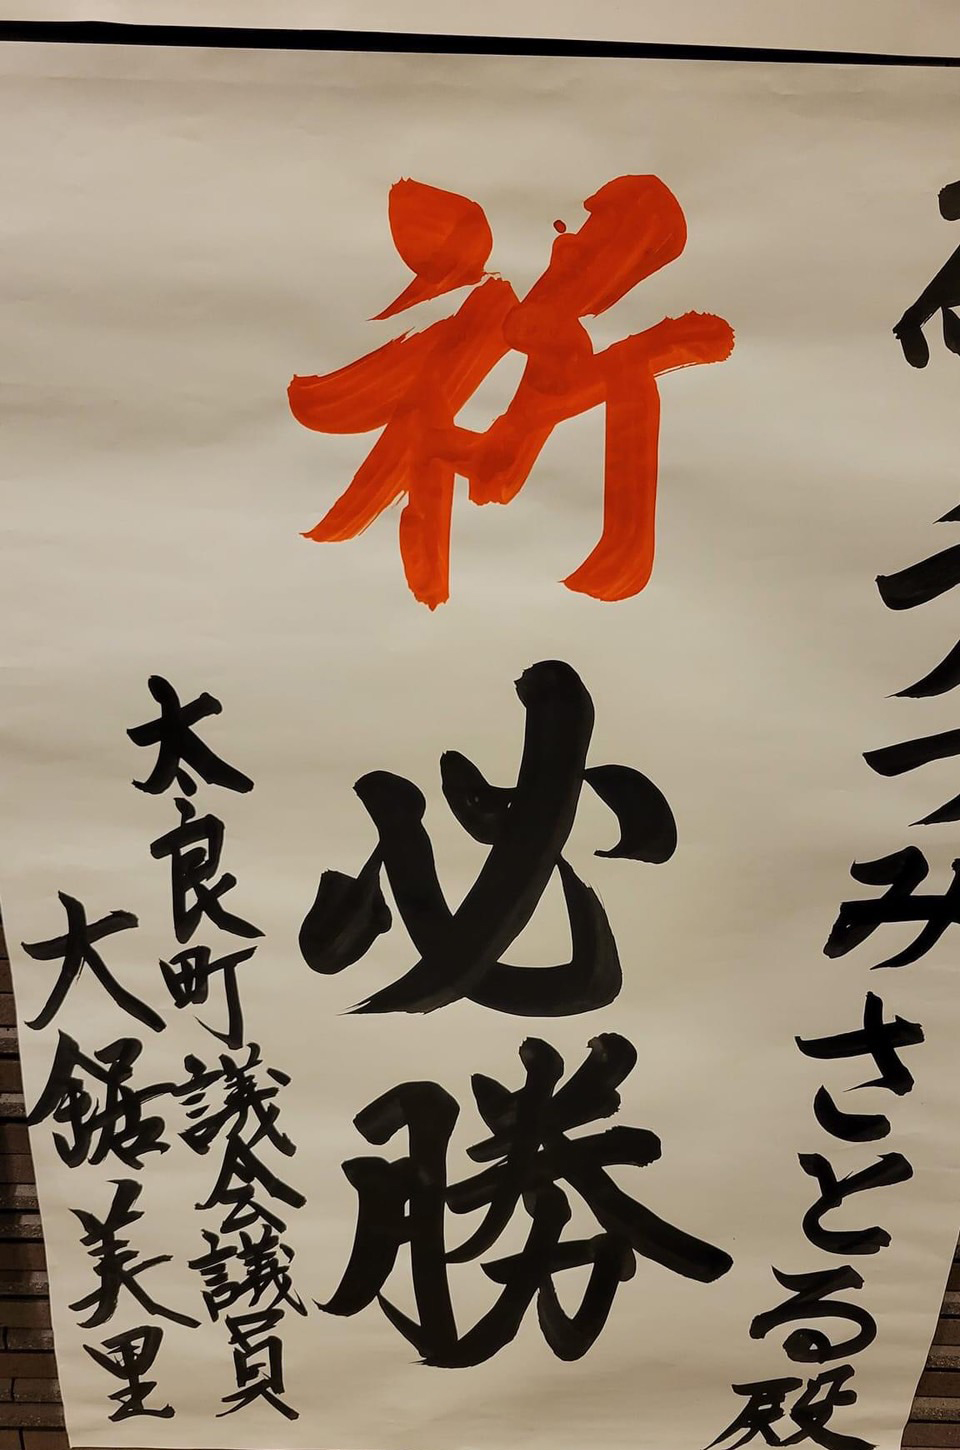 みさとる殿
祈必勝
太良町議会議員
大鋸美里